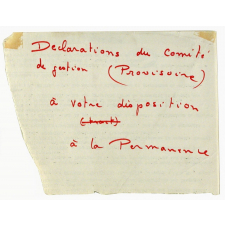 Declarations du comité
de gestion (Provisoire)
à votre disposition
à la Permanence